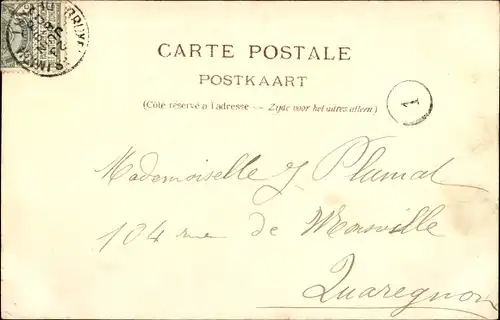 CARTE POSTALE
POSTKAART
(Côté réservé à l'adresse — Zijde voor het adres alleen.)
1
Mademoiselle J Plumat
104 rue de Monsville
Quaregnon